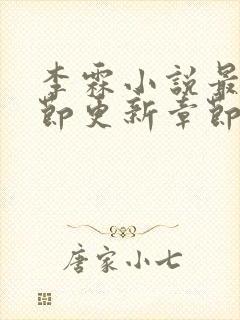 李霖小说最
節更新章節
唐家小七